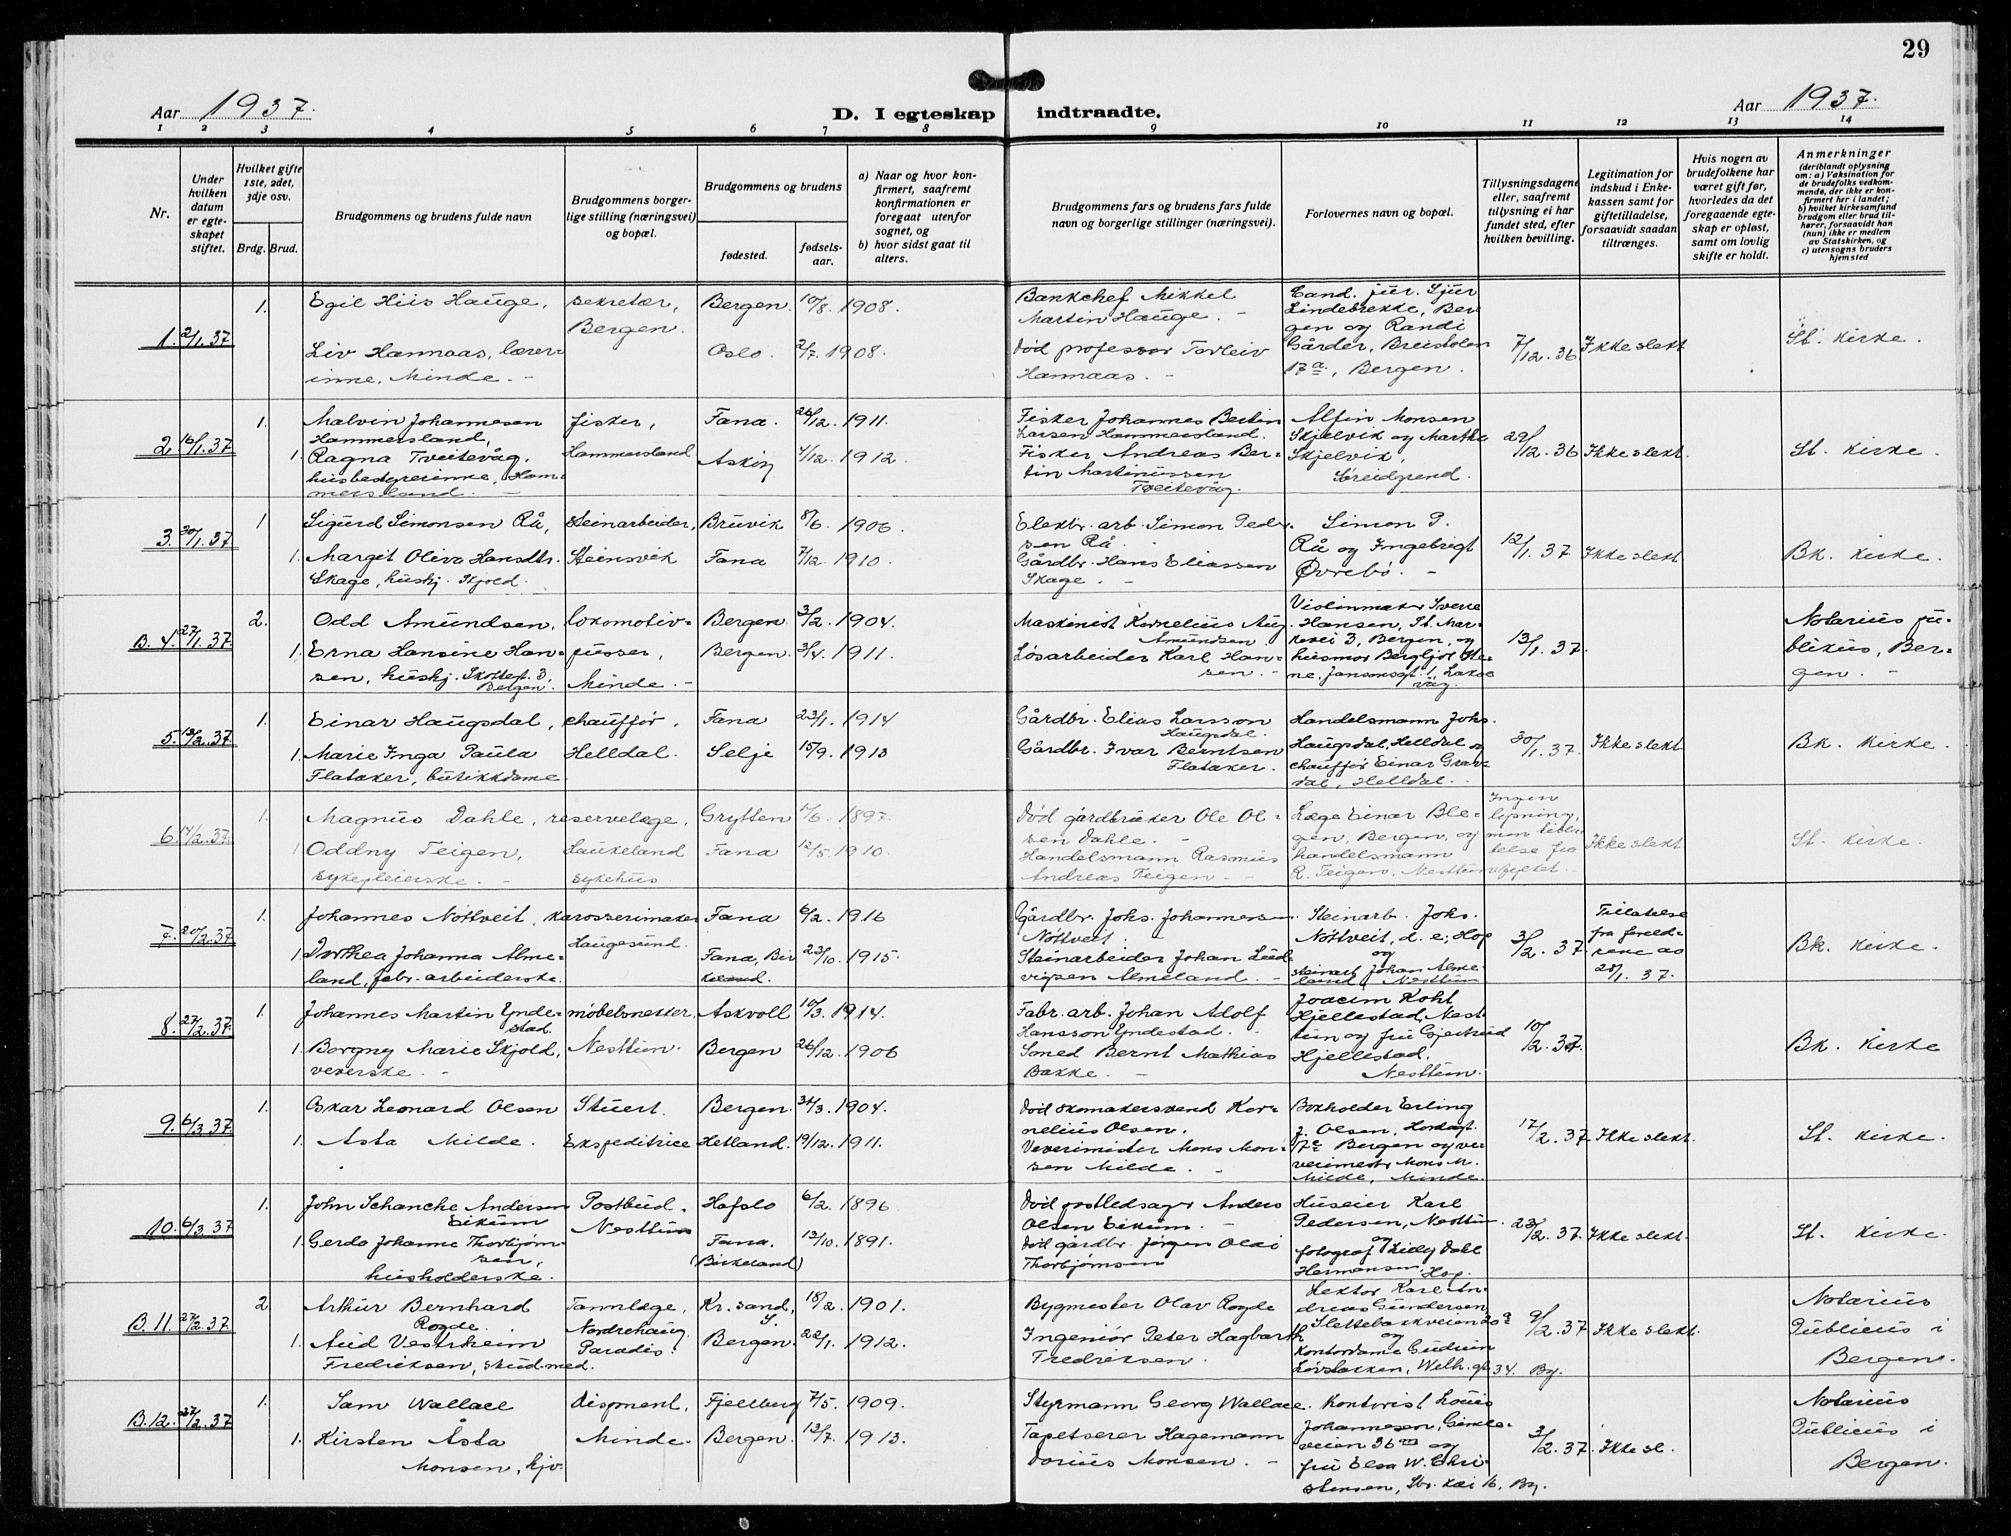 29
Aar 1937.
D. I egteskap indtraadte.
Aar 1937.
1 2 3 4 5 6 7 8 9 10 11 12 13 14
Nr.
Under hvilken datum er egteskapet stiftet.
Hvilket gifte 1ste, 2det, 3dje osv.
Brdg. Brud.
Brudgommens og brudens fulde navn
Brudgommens borgerlige stilling (næringsvei) og bopæl.
Brudgommens og brudens
fødested.
fødselsaar.
a) Naar og hvor konfirmert, saafremt konfirmationen er foregaat utenfor sognet, og
b) hvor sidst gaat til alters.
Brudgommens fars og brudens fars fulde navn og borgerlige stillinger (næringsvei).
Forlovernes navn og bopæl.
Tillysningsdagene eller, saafremt tillysning ei har fundet sted, efter hvilken bevilling.
Legitimation for indskud i Enkekassen samt for giftetilladelse, forsaavidt saadan tiltrænges.
Hvis nogen av brudefolkene har været gift før, hvorledes da det foregaaende egteskap er opløst, samt om lovlig skifte er holdt.
Anmerkninger
(deriblandt oplysning om: a) Vaksination for de brudefolks vedkommende, der ikke er konfirmert her i landet; b) hvilket kirkesamfund brudgom eller brud tilhører, forsaavidt han (hun) ikke er medlem av Statskirken, og c) utensogns bruders hjemsted
1. 2/1.37 1. Egil Hiis Hauge, sekretær, Bergen. Bergen 10/8. 1908.
Liv Hannaas, lærerinne, Minde. - Oslo. 2/7. 1908.
Bankchef Mikkel Martin Hauge. -
Død professor Torleiv Hannaas. -
Cand. jur. Sjur Lindebrekke, Bergen og Randi Gårder, Breistolen 17a, Bergen.
7/12.36 Ikke slekt St. kirke.
2. 16/1.37 1. Malvin Johannesen Hammersland, fisker, Hammersland Fana. 26/12. 1911.
1. Ragna Tveitevåg, husbestyrerinne, Hammersland. - Askøy 4/12. 1912.
Fisker Johannes Bertin Larsen Hammersland.
Fisker Andreas Bertin Martinussen Tveitevåg.
Alfin Monsen Skjelvik og Martha Skjelvik, Søreidgrend.
29/12.36 Ikke slekt. St. kirke.
3. 30/1.37 1 Sigurd Simonsen Rå, Steinarbeider, Steinsvik Bruvik 8/6. 1906.
1. Margit Oliva Hansdtr. Skage, hushj. Skjold. Fana 7/12. 1910.
Elektr. arb. Simon Pedersen Rå.
Gårdbr. Hans Eliassen Skage. -
Simon P. Rå og Ingebrigt Øvrebø. -
12/1.37 Ikke slekt Bk. kirke.
B.4. 27/1.37 2. Odd Amundsen, lokomotivpusser, Minde. - Bergen 3/2. 1904.
1. Erna Hansine Hansen, hushj. Skottegt. 3, Bergen. Bergen. 3/4. 1911.
Maskinist Kornelius Aug. Amundsen
Løsarbeider Karl Hansen. -
Violinmaker Sverre Hansen, St. Markevei 3, Bergen, og husmor Bergljot Stene. Jansonsgt. 1, Laksevåg.
13/1.37. Notarius publikus, Bergen. -
5. 13/2.37 1. Einar Haugsdal, chauffør, Helldal. Fana 23/1. 1914
1. Marie Inga Paula Flataker, butikkdame Selje 15/9. 1913
Gårdbr. Elias Larsson Haugsdal.
Gårdbr. Ivar Berntsen Flataker.
Handelsmann Johs. Haugsdal, Helldal og chauffør Einar Gravdal, Helldal.
30/1.37. Ikke slekt Bk. kirke.
6. 14/2.37. 1. Magnus Dahle, reservelæge, Haukeland sykehus. Grytten 17/6. 1897.
1 Oddny Teigen, sykepleierske. - Fana 12/5. 1910.
Død gårdbruker Ole Olsen Dahle. -
Handelsmann Rasmus Andreas Teigen. -
Læge Einar Blegen, Bergen, og handelsmann R. Teigen, Nesttun
Ingen lysning, Ikke slekt St. kirke.
7. 20/2.37 1. Johannes Nøttveit, karosserimaker Haugesund. Fana 6/2. 1916
1. Dorthea Johanna Almeland, fabr. arbeiderske. Fana, Birkeland. 23/10. 1915.
Gårdbr. Johs. Johannessen Nøttveit.
Steinarbeider Johan Ludvigsen Almeland. -
Steinarb. Johs. Nøttveit, d. e., Hop og steinarb. Johan Almeland, Nesttun
3/2.37. Tillatelse fra foreldrene av 20/1.37. Bk. kirke.
8. 27/2.37. 1. Johannes Martin Yndestad. møbelsnekker, Nesttun. Askvoll 10/3. 1914.
1. Borgny Marie Skjold, veverske. - Bergen 26/12. 1906
Fabr. arb. Johan Adolf Hansson Yndestad. -
Smed Bernt Mathias Bakke. -
Joacim Koht Hjellestad, Nesttun og fru Gjertrud Hjellestad, Nesttun.
10/2.37. Bk. kirke
9. 6/3.37 1. Oskar Leonard Olsen Stuert. Bergen. 31/3. 1904.
1. Asta Milde. Ekspeditrice Hetland. 19/12. 1911.
Død skomakersvend Kornelius Olsen.
Vevermister Mons Monsen Milde. -
Boxholder Erling J. Olsen, Bergen og vevermester Mons M. Milde, Minde.
17/2.37. Ikke slekt. St. kirke.
10. 6/3.37 1. John Schanche Andersen Eikum Postbud. Nesttun Hafslo 6/2. 1896
1. Gerda Johanne Thorbjørnsen, husholderske. Fana. (Birkeland) 13/10. 1891.
Død postledsager Anders Olsen Eikum. -
Død gårdbr. Jørgen Olai Thorbjørnsen
Huseier Karl Pedersen, Nesttun. og fotograf Lilly Dahl Hermansen, Hop.
23/2.37. Ikke slekt. St. kirke.
B.11. 27/2.37. 2 Arthur Bernhard Rogde. Tannlæge, Nordrehaug, Paradis. Kr. sand, S. 18/2. 1901.
1. Aud Vestrheim Fredriksen, stud. med. Bergen. 22/1. 1912.
Bygmester Olav Rogde
Ingeniør Peter Hagbarth Fredriksen.
Lektor Karl Andreas Gundersen, Slettebakkveien og kontordame Gudrun Løvstakken, Welh. gt. 34. By.
9/2.37 Ikke slekt. Notarius Publicus i Bergen.
B.12. 27/2.37 1. Sam Wallace disponent, Minde. Fjelberg 7/5. 1909.
1. Kirsten Åsta Monsen, hjv. Bergen. 13/7. 1913.
Styrmann Georg Wallace.
Tapetserer Hagemann Darius Monsen. -
Kontorist Louis Johannesen, Gimleveien 36 og fru Elsa W. Christensen, Str. kai 16. By.
3/2.37. Ikke sl. Notarius Publicus i Bergen.